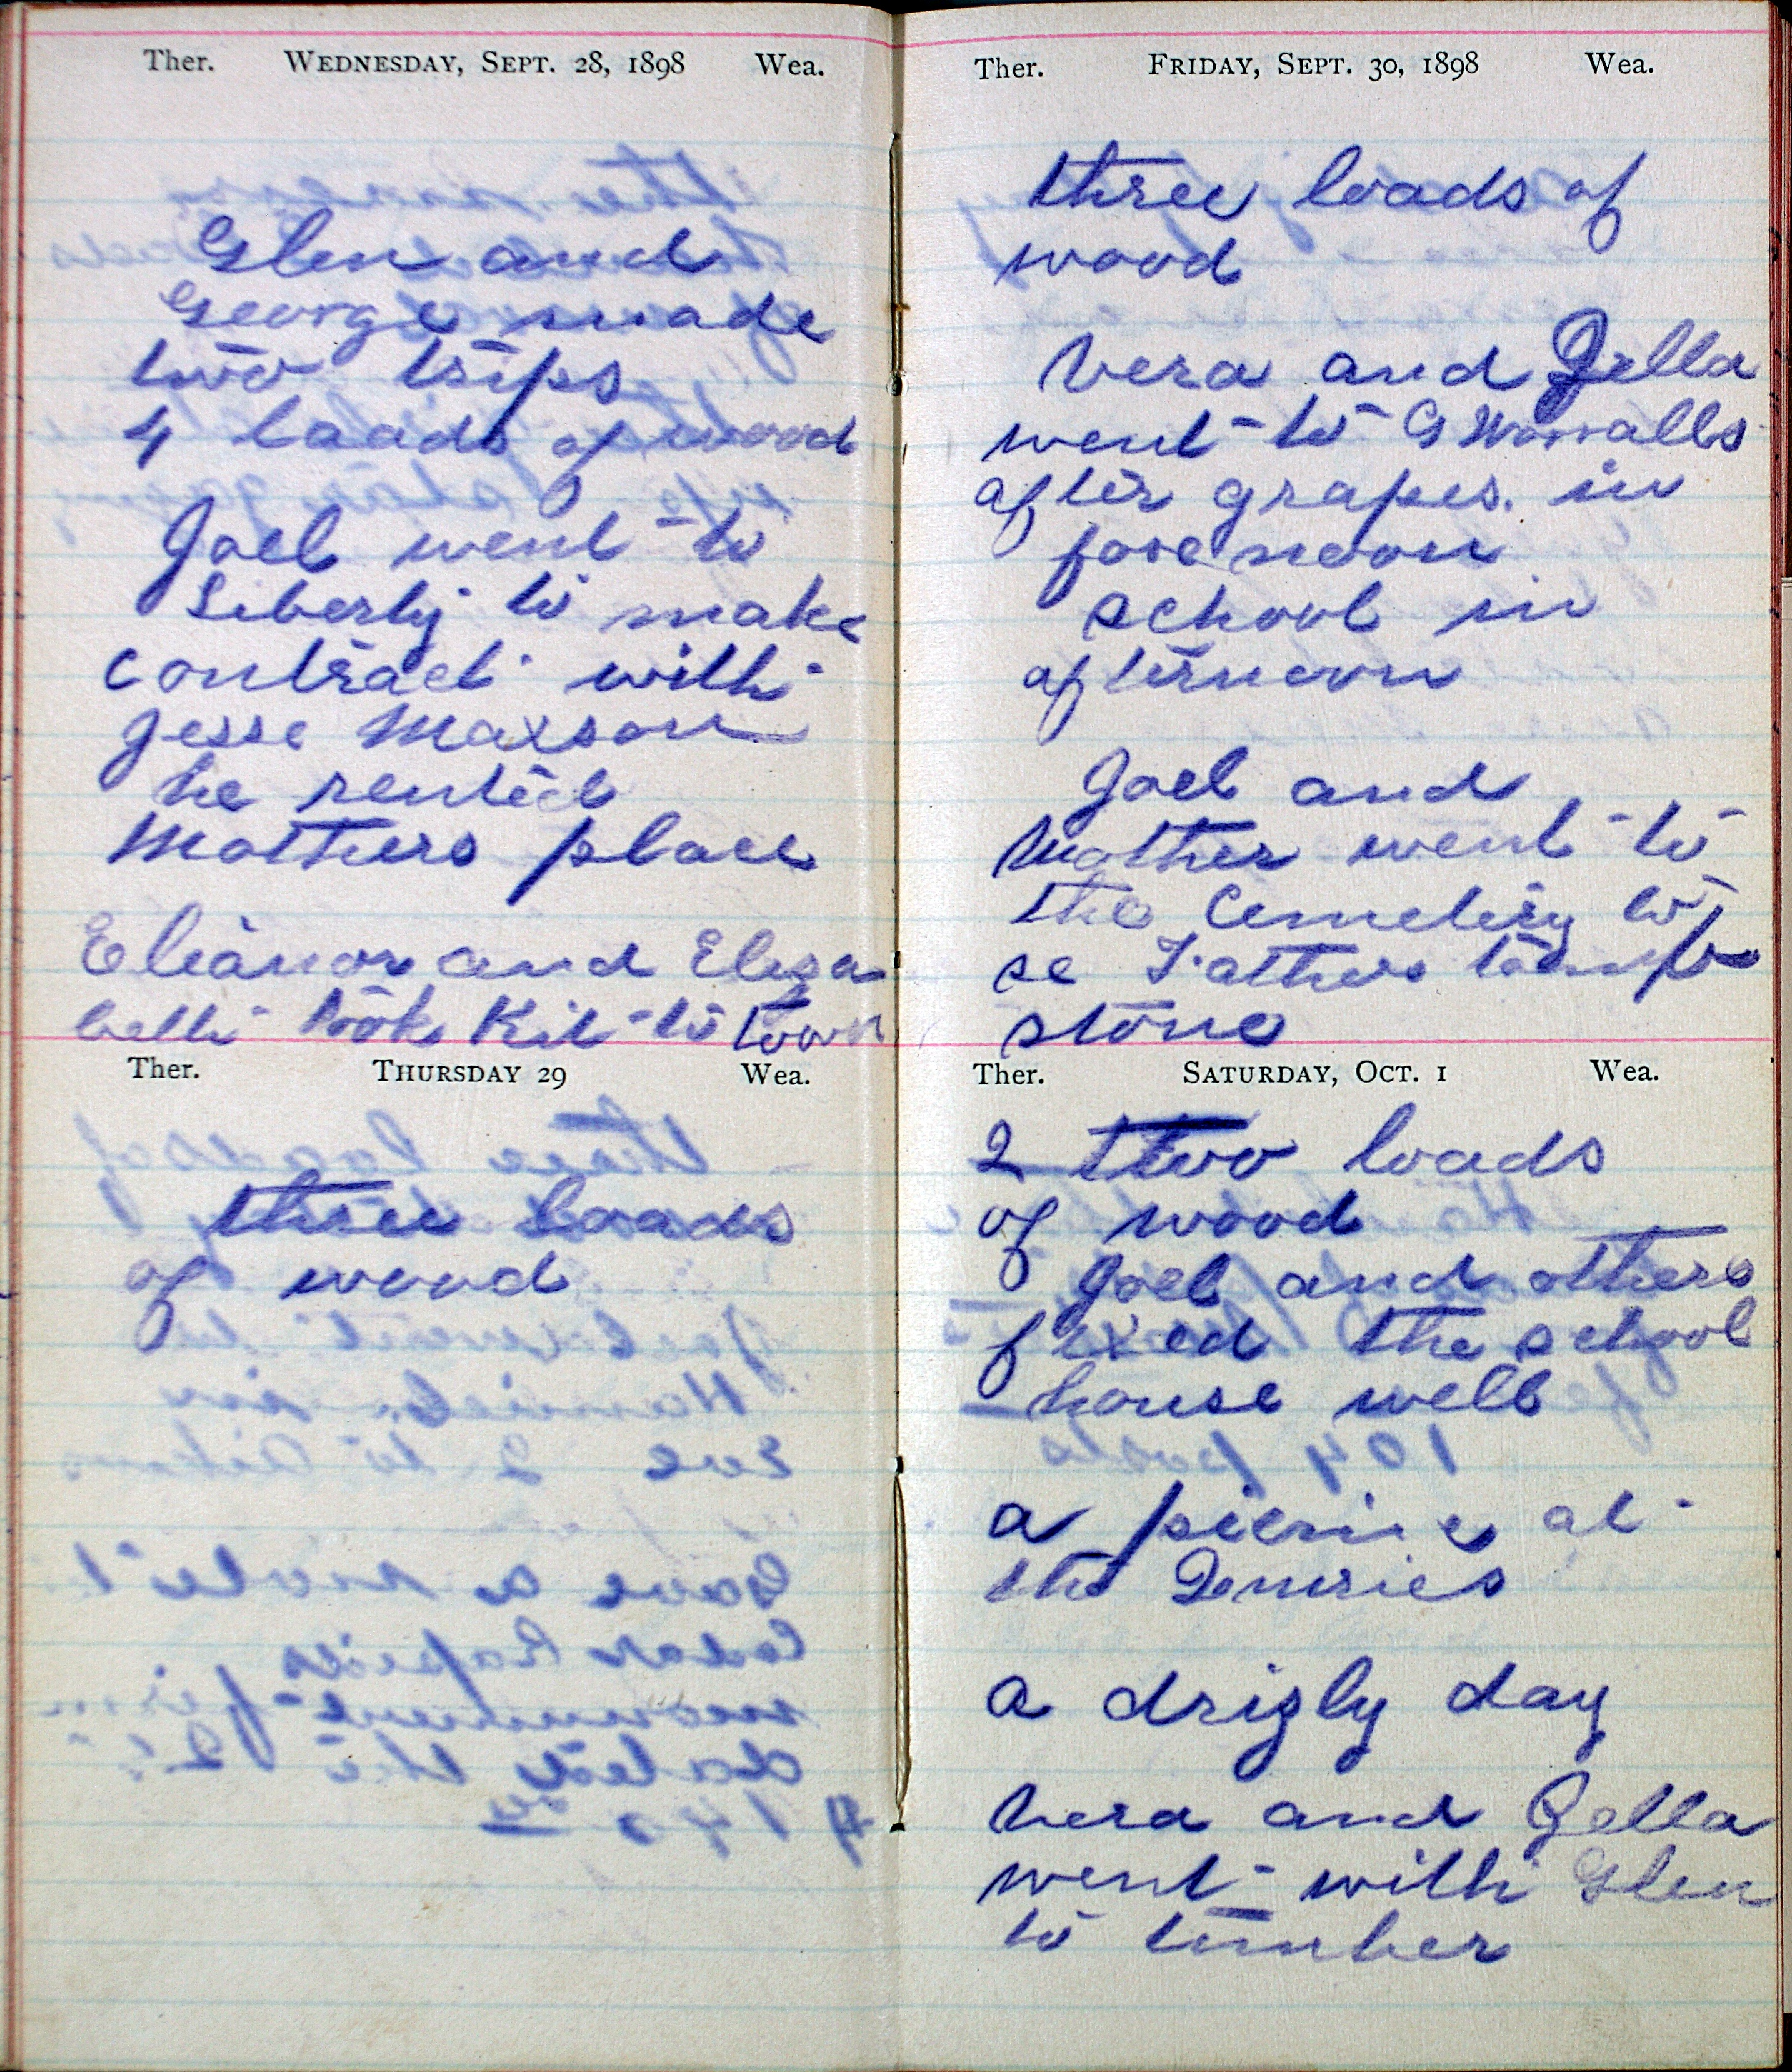 Ther. WEDNESDAY, SEPT. 28, 1898 Wea.
Glen and
George made
two trips
4 loads of wood
Joel went to
Liberty to make
contract with
Jesse Maxson
he rented
Mothers place
Eleanor and Eliza
beth took Kit to town
Ther. THURSDAY 29 Wea.
three loads
of wood
Ther. FRIDAY, SEPT. 30, 1898 Wea.
three loads of
wood
Vera and Zella
went to G Worralls
after grapes. in
forenoon
school in
afternoon
Joel and
Mother went to
the Cemetery to
se Fathers
stone
Ther. SATURDAY, OCT. 1 Wea.
2 two loads
of wood
Joel and others
fixed the school
house well
a picnic at
the
a drizly day
Vera and Zella
went with Glen
to timber